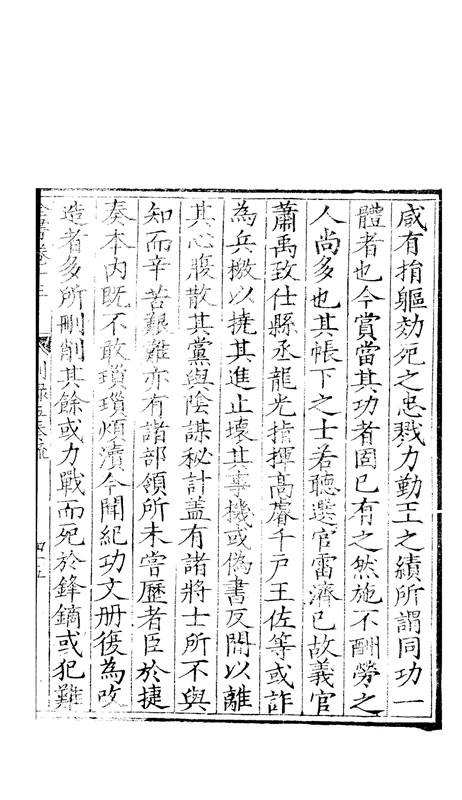 咸有捐軀効死之忠戮力勤王之績所謂同功一
體者也今賞當其功者固已有之然施不酬勞之
人尚多也其帳下之士若聽選官雷濟已故義官
蕭禹致仕縣丞龍光指揮高睿千戶王佐等或詐
為兵檄以撓其進止壞其事機或偽書反間以離
其心腹散其黨與陰謀秘計蓋有諸將士所不與
知而辛苦艱難亦有諸部領所未嘗歷者臣於捷
奏本內既不敢瑣瑣煩瀆今聞紀功文冊復為改
造者多所刪削其餘或力戰而死於鋒鏑或犯難
全書卷十三 別錄五奏疏 四十五